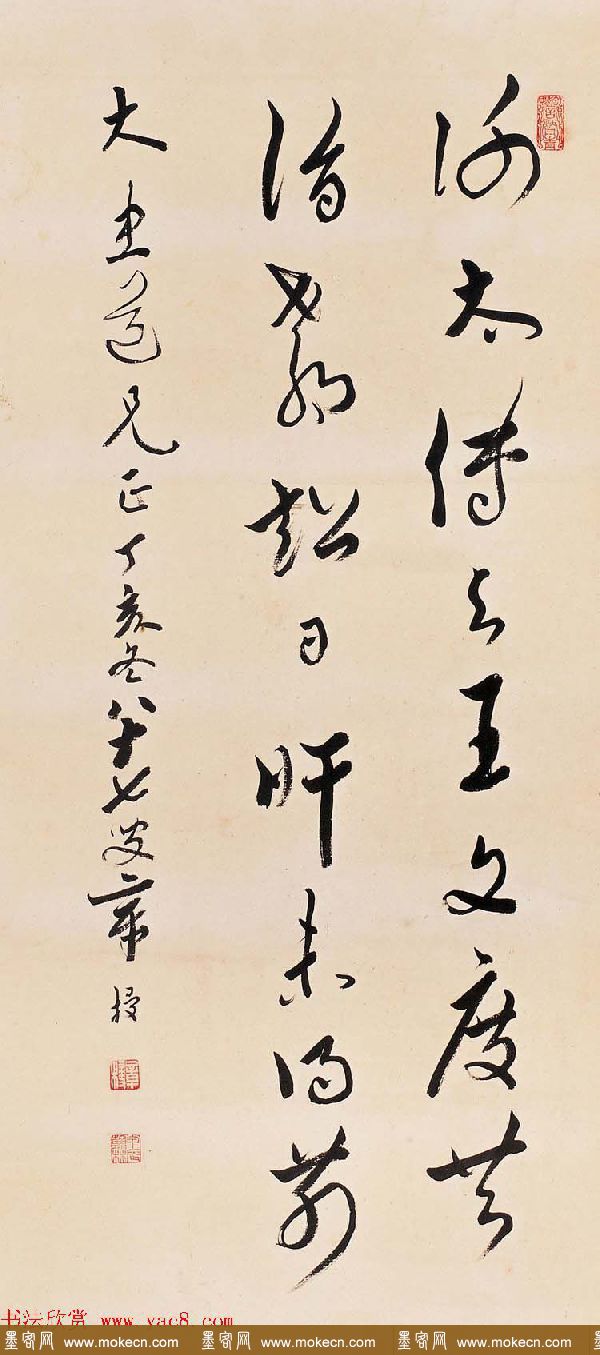 谢太傅与王文度共
诣郗超日旰未得前
大忠道兄正丁亥冬八十七叟章梫
书法欣赏 www.yac8.com
墨客网 www.mokecn.com 墨客网 www.mokecn.com 墨客网 www.mokecn.com